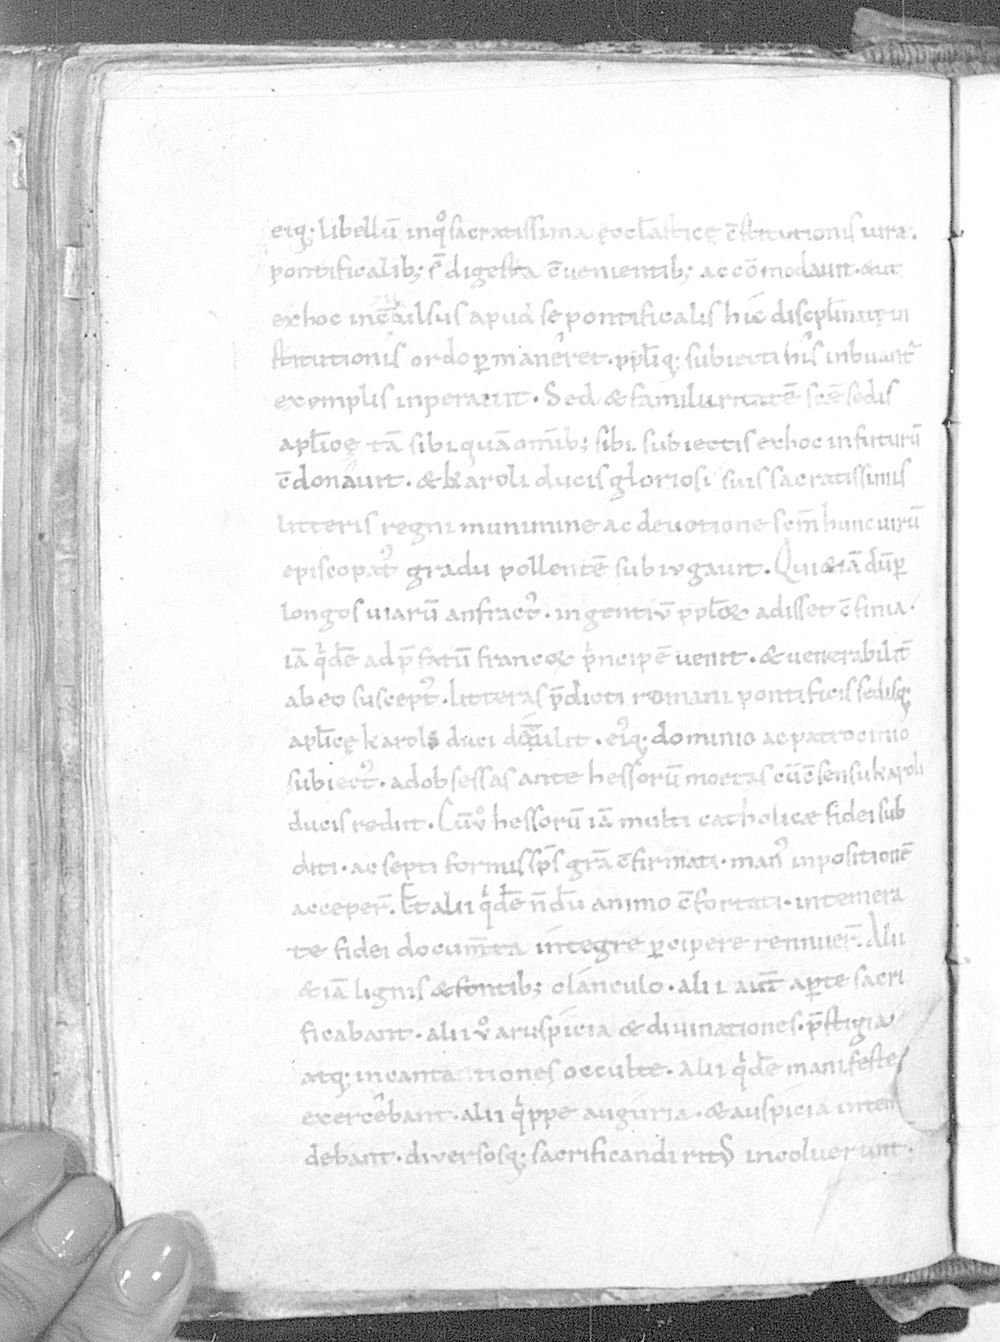 eiq; libellũ inqͦ sacratissima ęccl̄astice c̄stitutionis iura.
pontificalib; s̄ digesta c̄uenientib; accōmodauit. & ut
exhoc inc̄uulsus apud se pontificalis hic discipl̄inatus in
stitutionis ordo ꝑmaneret. ppl̄iq; subiecti his inbuant᷑
exemplis inperauit. Sed & familiaritatē scǣ sedis
apl̄icę tā sibi quā om̄ib; sibi subiectis exhoc infuturū
c̄donauit. & karoli ducis gloriosi suis sacratissimis
litteris regni munimine ac deuotione scm̄ hunc uirū
episcopat᷒ gradu pollentē subiugauit. Qui &iā dūꝑ
longos uiarū anfract᷒. ingentiū ppl̄oꝝ adisset c̄finia.
iā qͥdē ad p̄fatū francoꝝ pͥncipē uenit. & uenerabilit᷑
ab eo suscept᷒. litteras p̄dicti romani pontificis sedisq;
apl̄icę karolo duci detulit. ei᷒q; dominio ac patrocinio
subiect᷒. ad obsessas ante hessorū moetas cū c̄sensu karoli
ducis rediit. Cū uͦ hessorū iā multi catholicæ fidei sub
diti. ac septi formis sp̄s grā c̄firmati. man᷒ inpositionē
acceper̄. Et alii qͥdē n̄dū animo c̄fortati. intemera
te fidei docum̄ta integre ꝑcipere rennuer̄. Alii
&iā lignis & fontib; clanculo. alii aut̄ aꝑte sacri
ficabant. alii uͦ aruspicia & diuinationes. p̄stigia
atq; incantationes occulte. Alii qͥdē manifeste
exercebant. alii qͥppe auguria. & auspicia inten
debant. diuersosq; sacrificandi ritus incoluerunt.